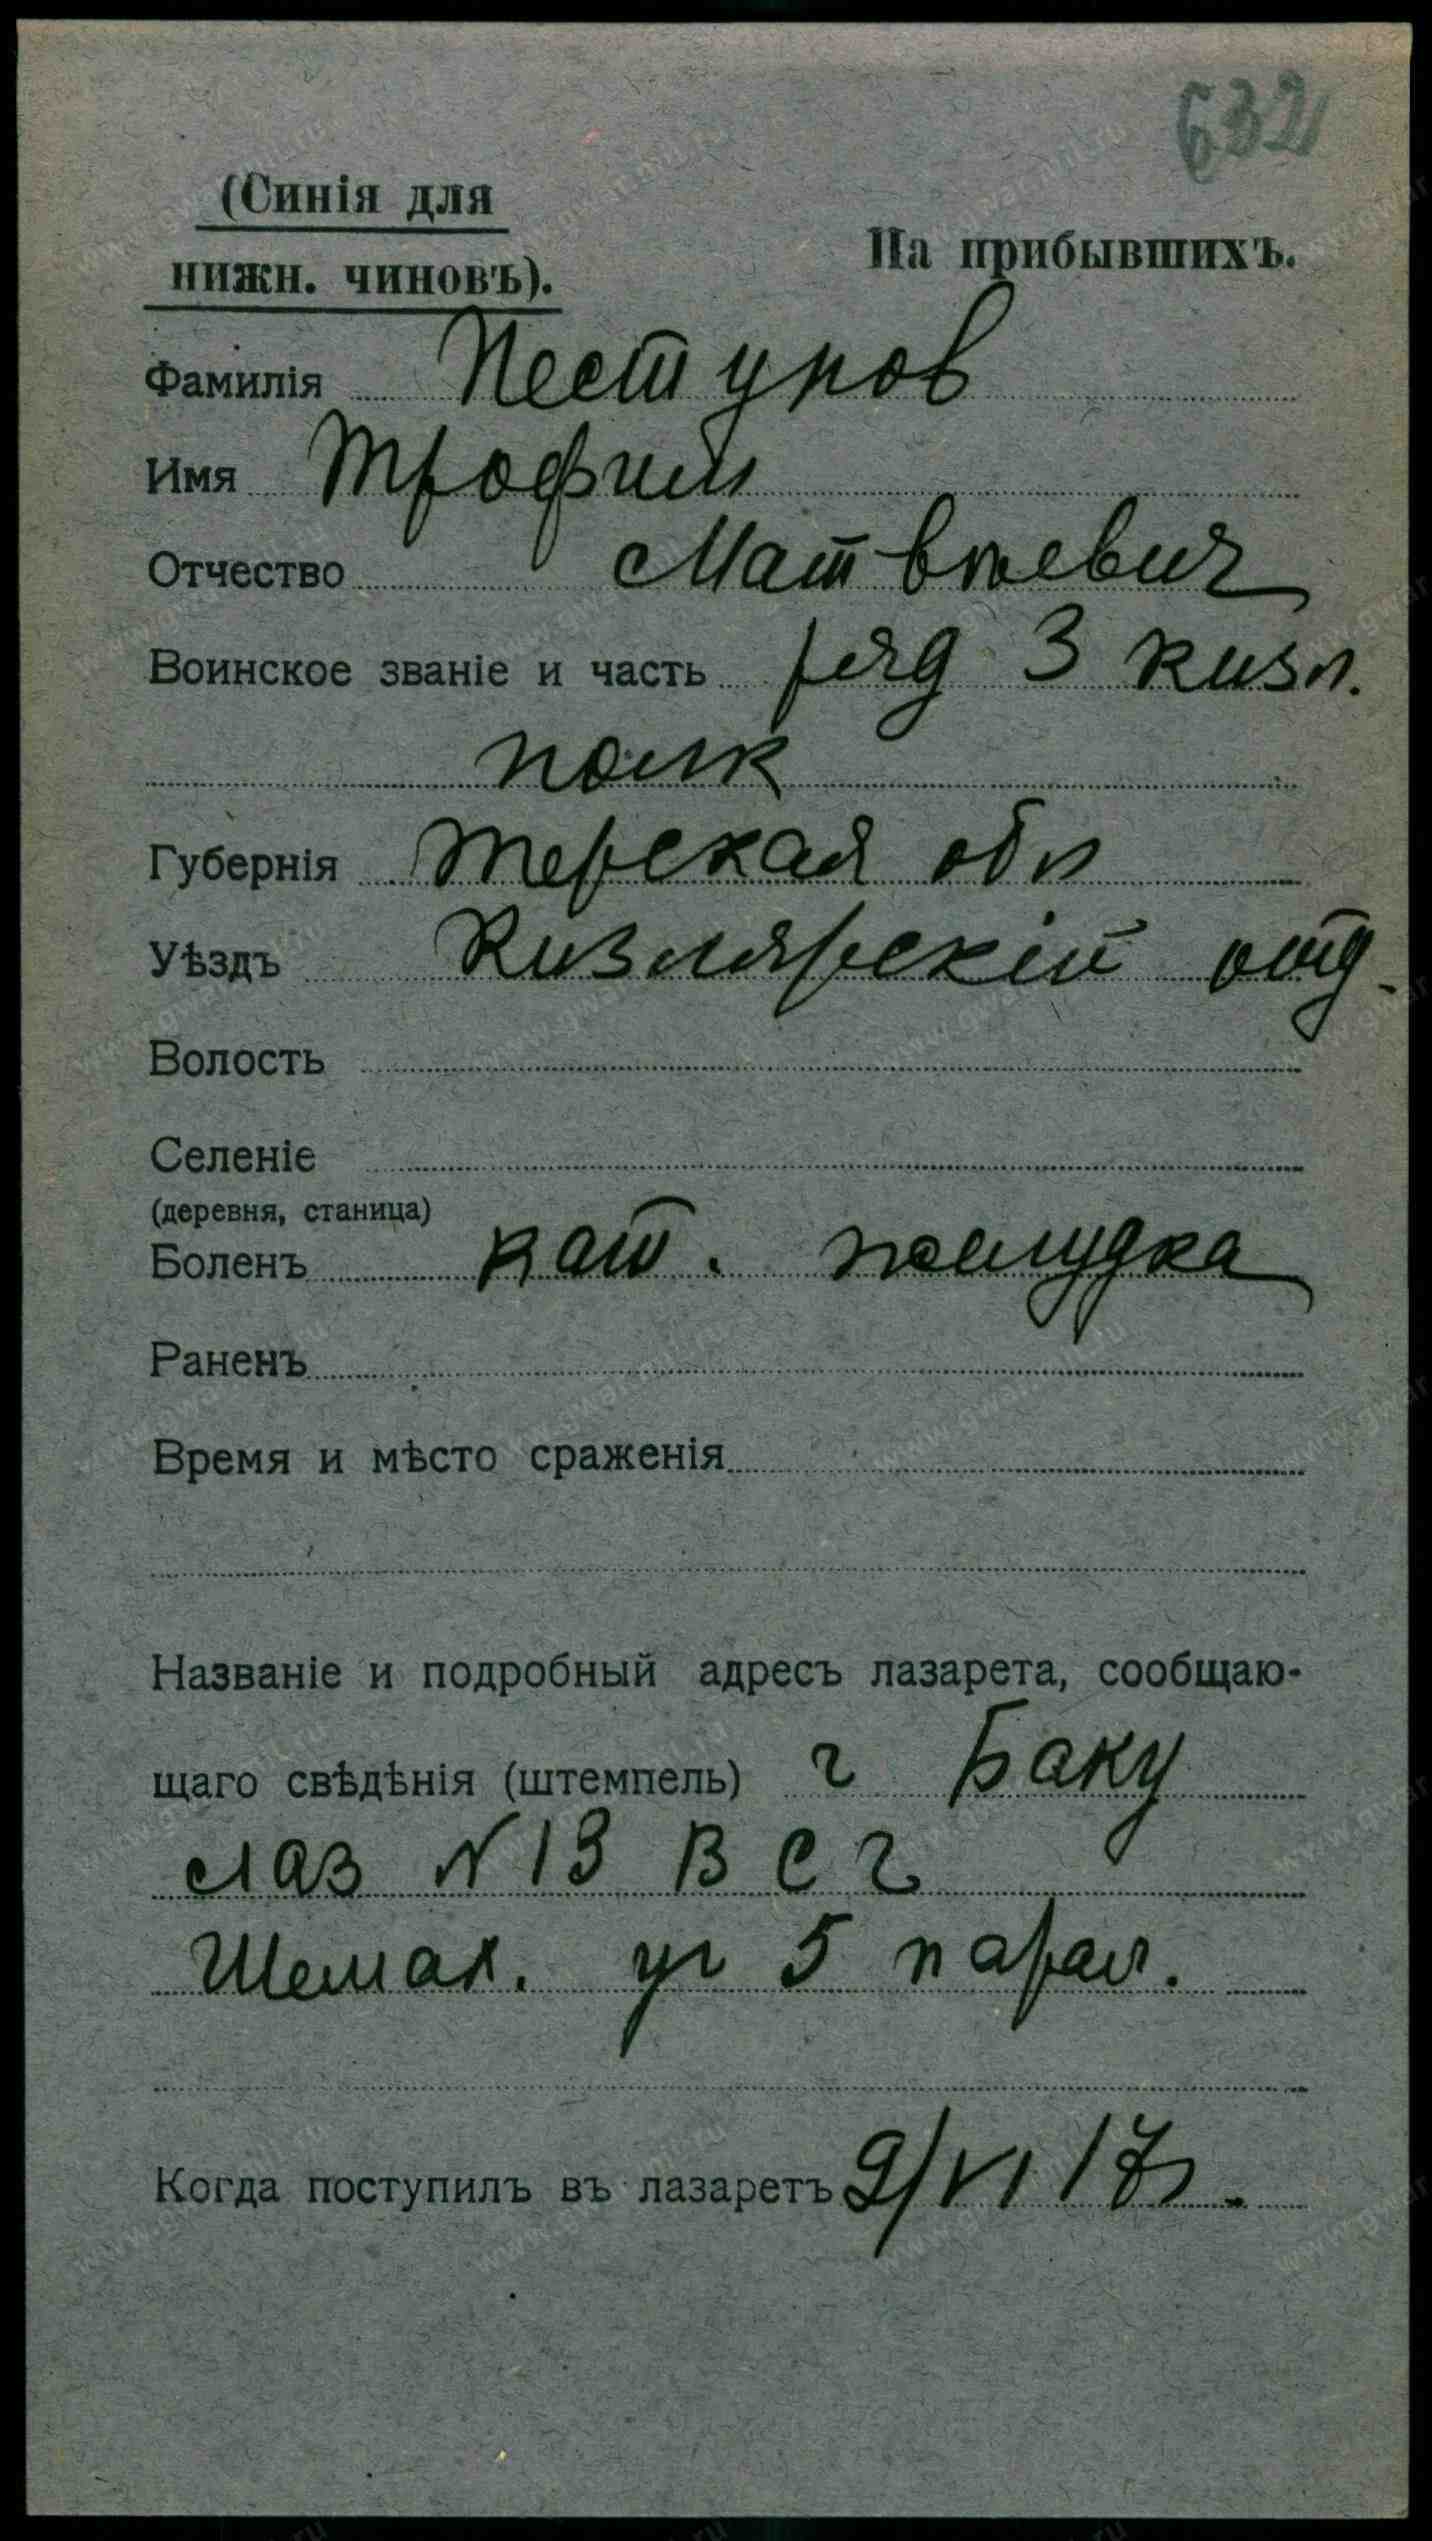 632
(Синія для
нижн. чиновъ).
На прибывшихъ.
Фамилія Пеступов
Имя Трофим
Отчество Матвѣевич
Воинское званіе и часть ряд 3 кизл.
полк
Губернія Терская обл
Уѣздъ Кизлярскій отд.
Волость
Селеніе
(деревня, станица)
Боленъ кат. желудка
Раненъ
Время и мѣсто сраженія
Названіе и подробный адресъ лазарета, сообщаю-
щаго свѣдѣнія (штемпель) г Баку
лаз N 13 В С Г
Шемах. уг 5 парал.
Когда поступилъ въ лазаретъ 9/VI 17г.